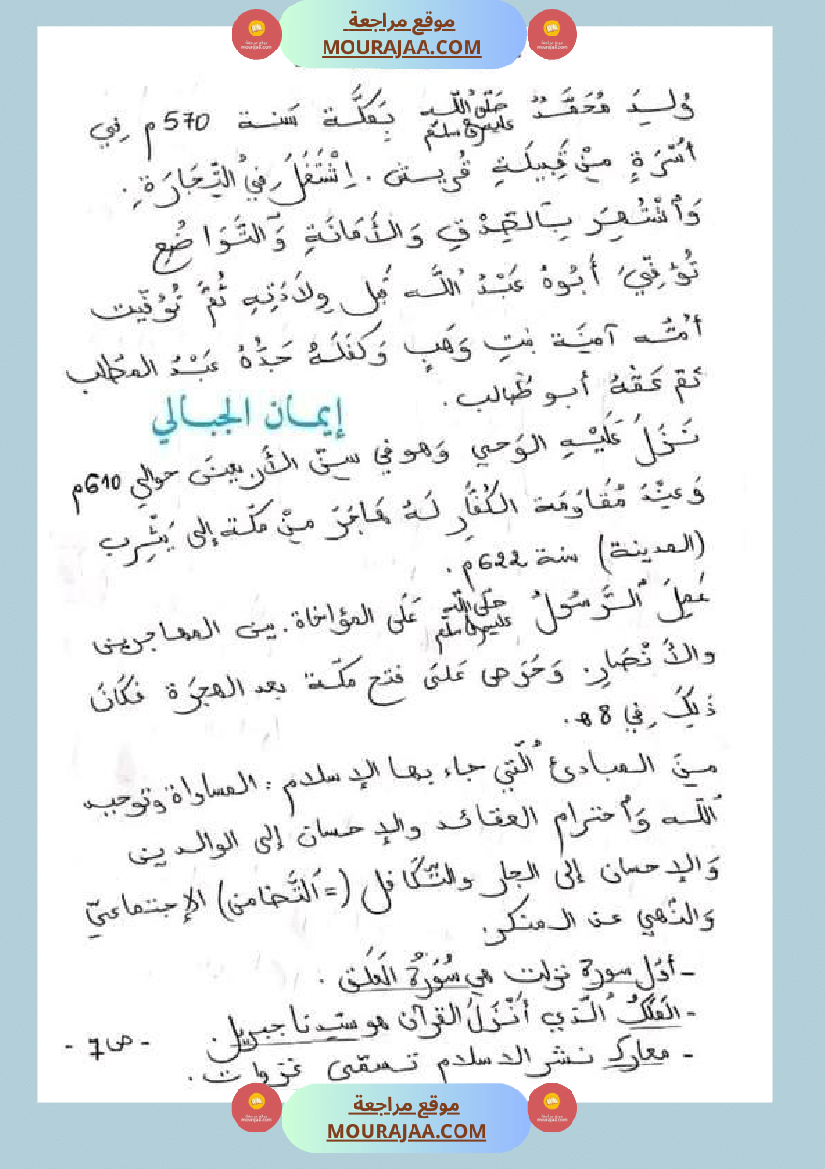 موقع مراجعة
MOURAJAA.COM
وُلِدَ مُحَمَّدٌ صَلَّى اللَّه عليه وسلم بِمَكَّة سَنة 570م فِي
أُسْرَةٍ مِنْ قَبِيلَةِ قُريش. اِشْتَغَلَ فِي التِّجَارَةِ.
وَاشْتُهِرَ بِالصِّدْقِ وَالأَمَانَةِ وَالتَّوَاضُعِ
تُوُفِّيَ أَبُوهُ عَبْدُ اللَّه قَبل وِلاَدَتِهِ ثُمَّ تُوُفِّيت
أمّه آمنة بنتِ وَهَبٍ وَكَفَلَهُ جَدُّهُ عَبْدُ المطّلب
ثم عَمّهُ أبو طَالب.
إيمان الجبالي
نَزَلَ عَلَيْهِ الوَحي وَهو في سِنّ الأربعينَ حوالي 610م
وَعِنْدَ مُقَاوَمَة الكُفَّارِ لَهُ هَاجَرَ مِنْ مَكّة إلى يَثْرِب
(المدينة) سنة 622م.
عَمِلَ الرَّسُولُ صَلَّى اللَّه عليه وسلم عَلَى المؤاخاة بين المهاجرين
والأنْصَارِ. وَحَرَصَ عَلَى فتح مكّة بعد الهجرَة فكَانَ
ذَلِكَ فِي 8 هـ.
مِنَ المبادئ الَّتي جاء بها الإسلام : المساواة وتوحيد
اللّه وَاحترام العقائد والإحسان إلى الوالدين
وَالإحسان إلى الجار والتَّكَافل (= التَّضامن) الإجتماعيّ
وَالنّهي عن المنكر.
- أوّل سورة نزلت هي سُورَةُ العَلَق .
- المَلَكُ الَّذي أَنْزَلَ القرآن هو سيّدنا جبريل.
- معارك نشر الاسلام تسمّى غزوات .
- ص7 -
موقع مراجعة
MOURAJAA.COM